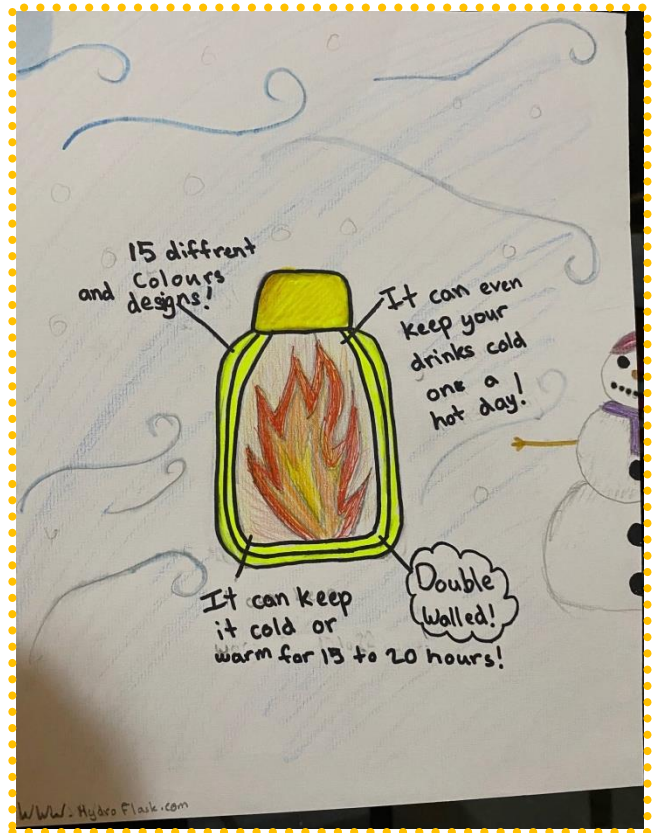 15 diffrent
and Colours
designs!
It can even
keep your
drinks cold
one a
hot day!
It can keep
it cold or
warm for 15 to 20 hours!
Double
Walled!
WWW.HydroFlask.com